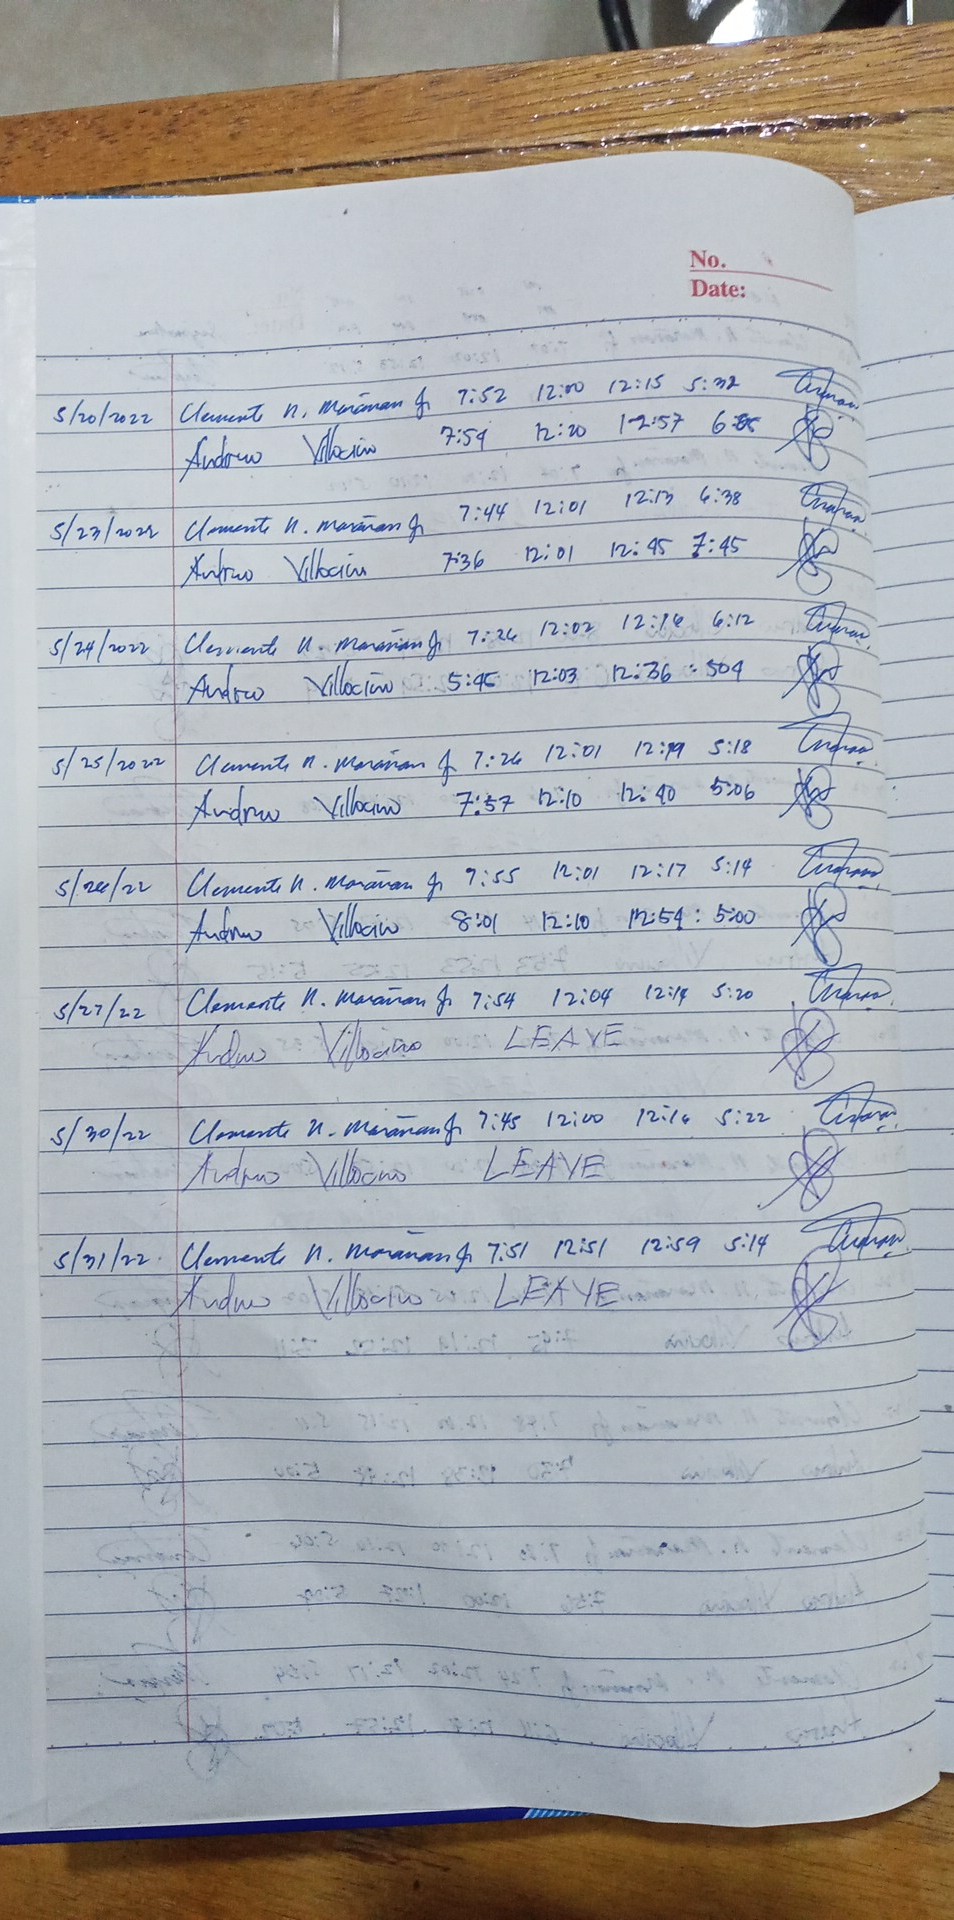 No.
Date:
5/20/2022 Clemente N. Marañan Jr 7:52 12:00 12:15 5:32
Andrew Villocino 7:54 12:20 12:57
5/23/2022 Clemente N. Marañan Jr 7:44 12:01 12:13 6:38
Andrew Villocino 7:36 12:01 12:45 7:45
5/24/2022 Clemente N. Marañan Jr 7:26 12:02 12:16 6:12
Andrew Villocino 5:45 12:03 12:36 : 504
5/25/2022 Clemente N. Marañan Jr 7:26 12:01 5:18
Andrew Villocino 7:57 12:10 12:40 5:06
5/26/22 Clemente N. Marañan Jr 7:55 12:01 12:17 5:14
Andrew Villocino 8:01 12:10 12:54 : 5:00
5/27/22 Clemente N. Marañan Jr 7:54 12:04 12:14 5:20
Andrew Villocino LEAVE
5/30/22 Clemente N. Marañan Jr 7:45 12:00 12:16 5:22
Andrew Villocino LEAVE
5/31/22 Clemente N. Marañan Jr 7:51 12:51 12:59 5:14
Andrew Villocino LEAVE